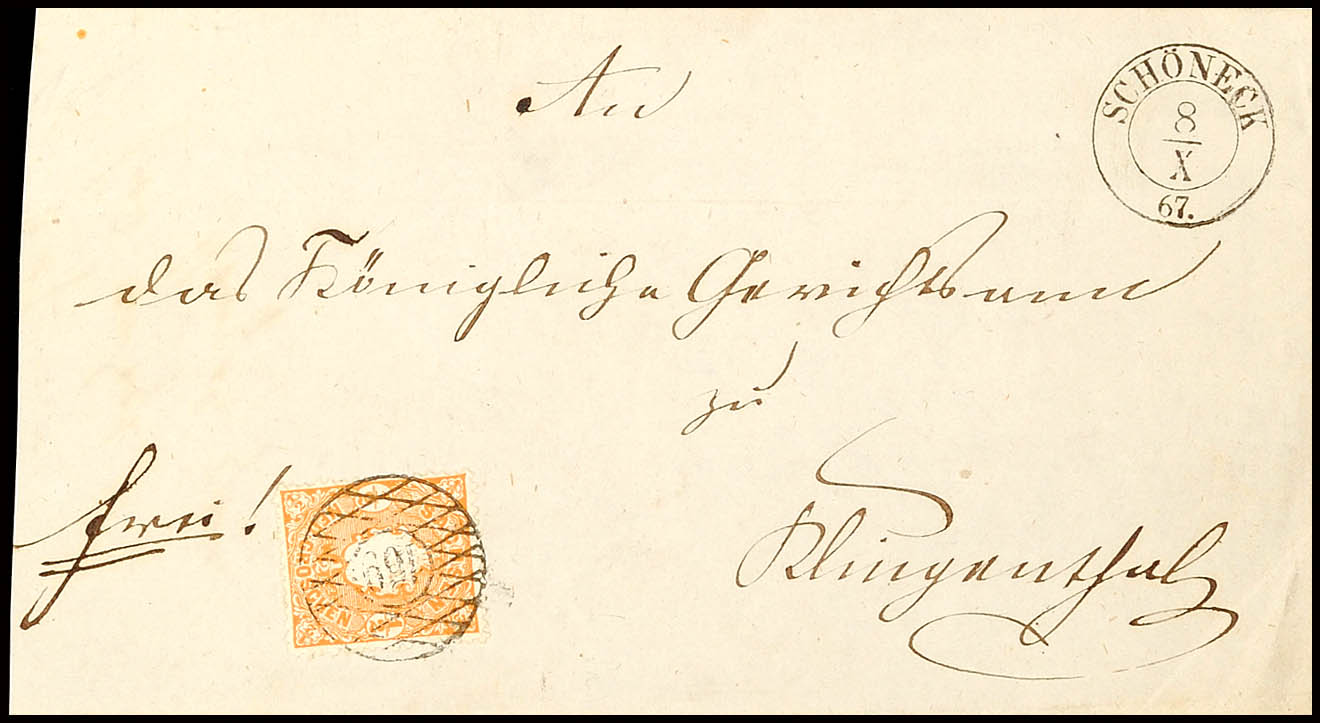 An
SCHÖNECK
8
X
67.
das Königliche Gerichtsamt
zu
Klingenthal
frei!
SACHSEN
NEUGROSCHEN